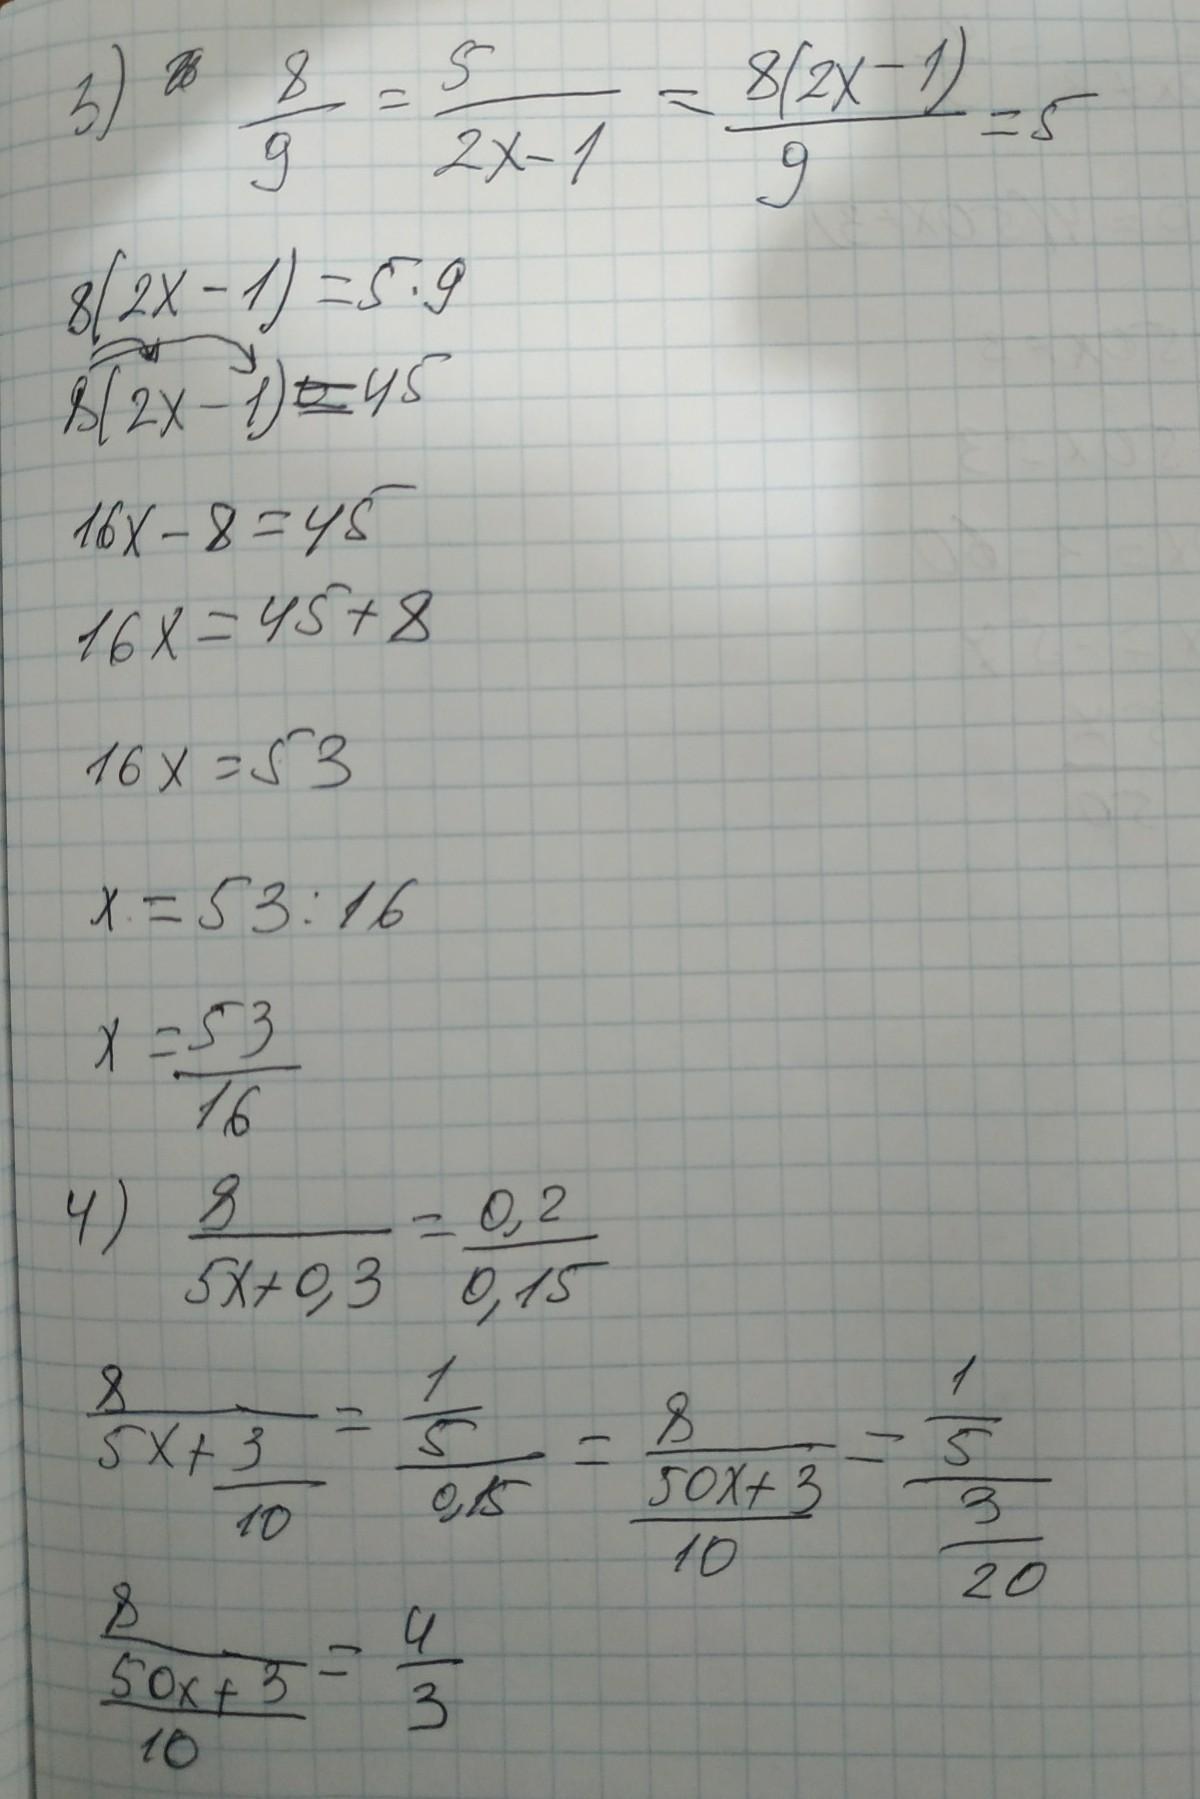 3) 8/9 = 5/(2x-1) = 8(2x-1)/9 = 5
8(2x-1) = 5·9
8(2x-1) = 45
16x-8=45
16x=45+8
16x=53
x=53:16
x=53/16
4) 8/(5x+0,3) = 0,2/0,15
8/(5x+3/10) = (1/5)/0,15 = 8/((50x+3)/10) = (1/5)/(3/20)
8/((50x+3)/10) = 4/3